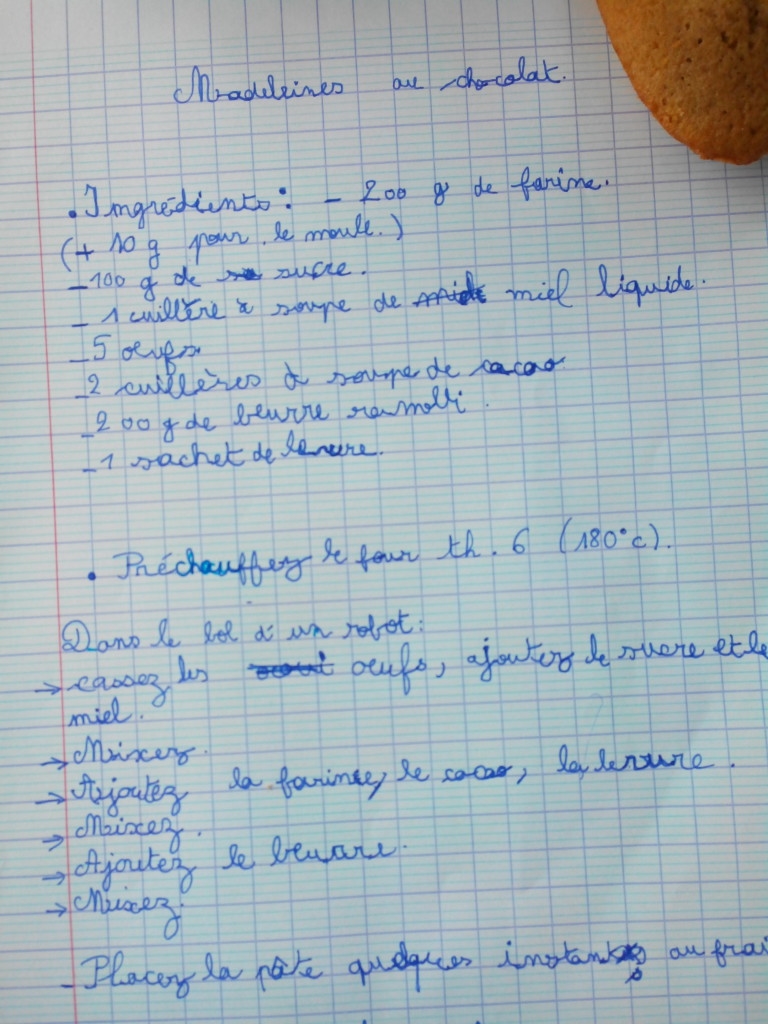 Madeleines au chocolat.
• Ingrédients : - 200 g de farine.
(+ 10 g pour le moule.)
- 100 g de sucre.
- 1 cuillère à soupe de miel liquide.
- 5 oeufs
- 2 cuillères à soupe de cacao
- 200 g de beurre ramolli.
- 1 sachet de levure.
• Préchauffez le four th. 6 (180°c).
Dans le bol d'un robot :
→ cassez les oeufs, ajoutez le sucre et le
miel.
→ Mixez.
→ Ajoutez la farine, le cacao, la levure.
→ Mixez.
→ Ajoutez le beurre.
→ Mixez.
- Placez la pâte quelques instants au frai